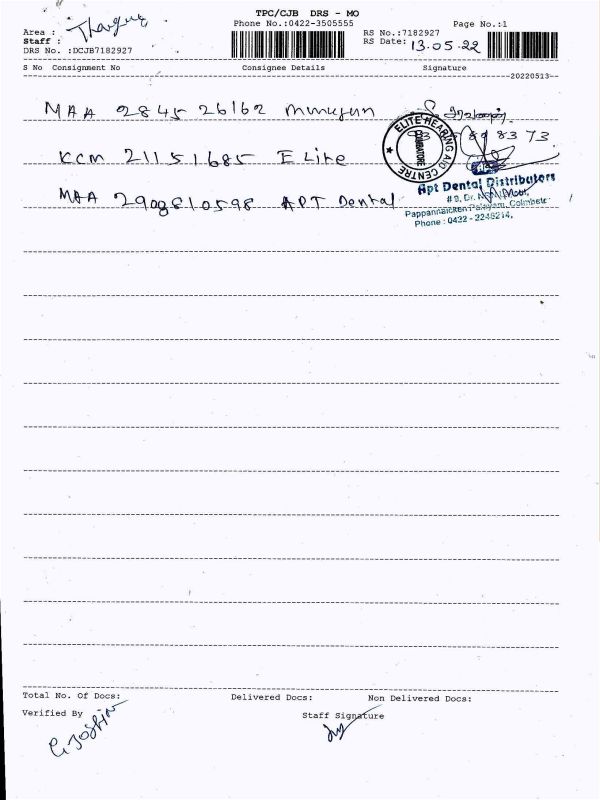 TPC/CJB DRS - MO
Phone No.:0422-3505555
Page No.:1
Area :
Staff :
DRS No. :DCJB7182927
RS No.:7182927
RS Date: 13.05.22
S No Consignment No Consignee Details Signature
20220513
MAA 284526162 Murugan
ELITE HEARING AID CENTRE
COIMBATORE
KCM 21151685 Elite
MAA 2908810598 APT Dental
Apt Dental Distributors
Pappannaicken Palayam, Coimbatore
Phone : 0422 - 2246214.
Total No. Of Docs: Delivered Docs: Non Delivered Docs:
Verified By Staff Signature